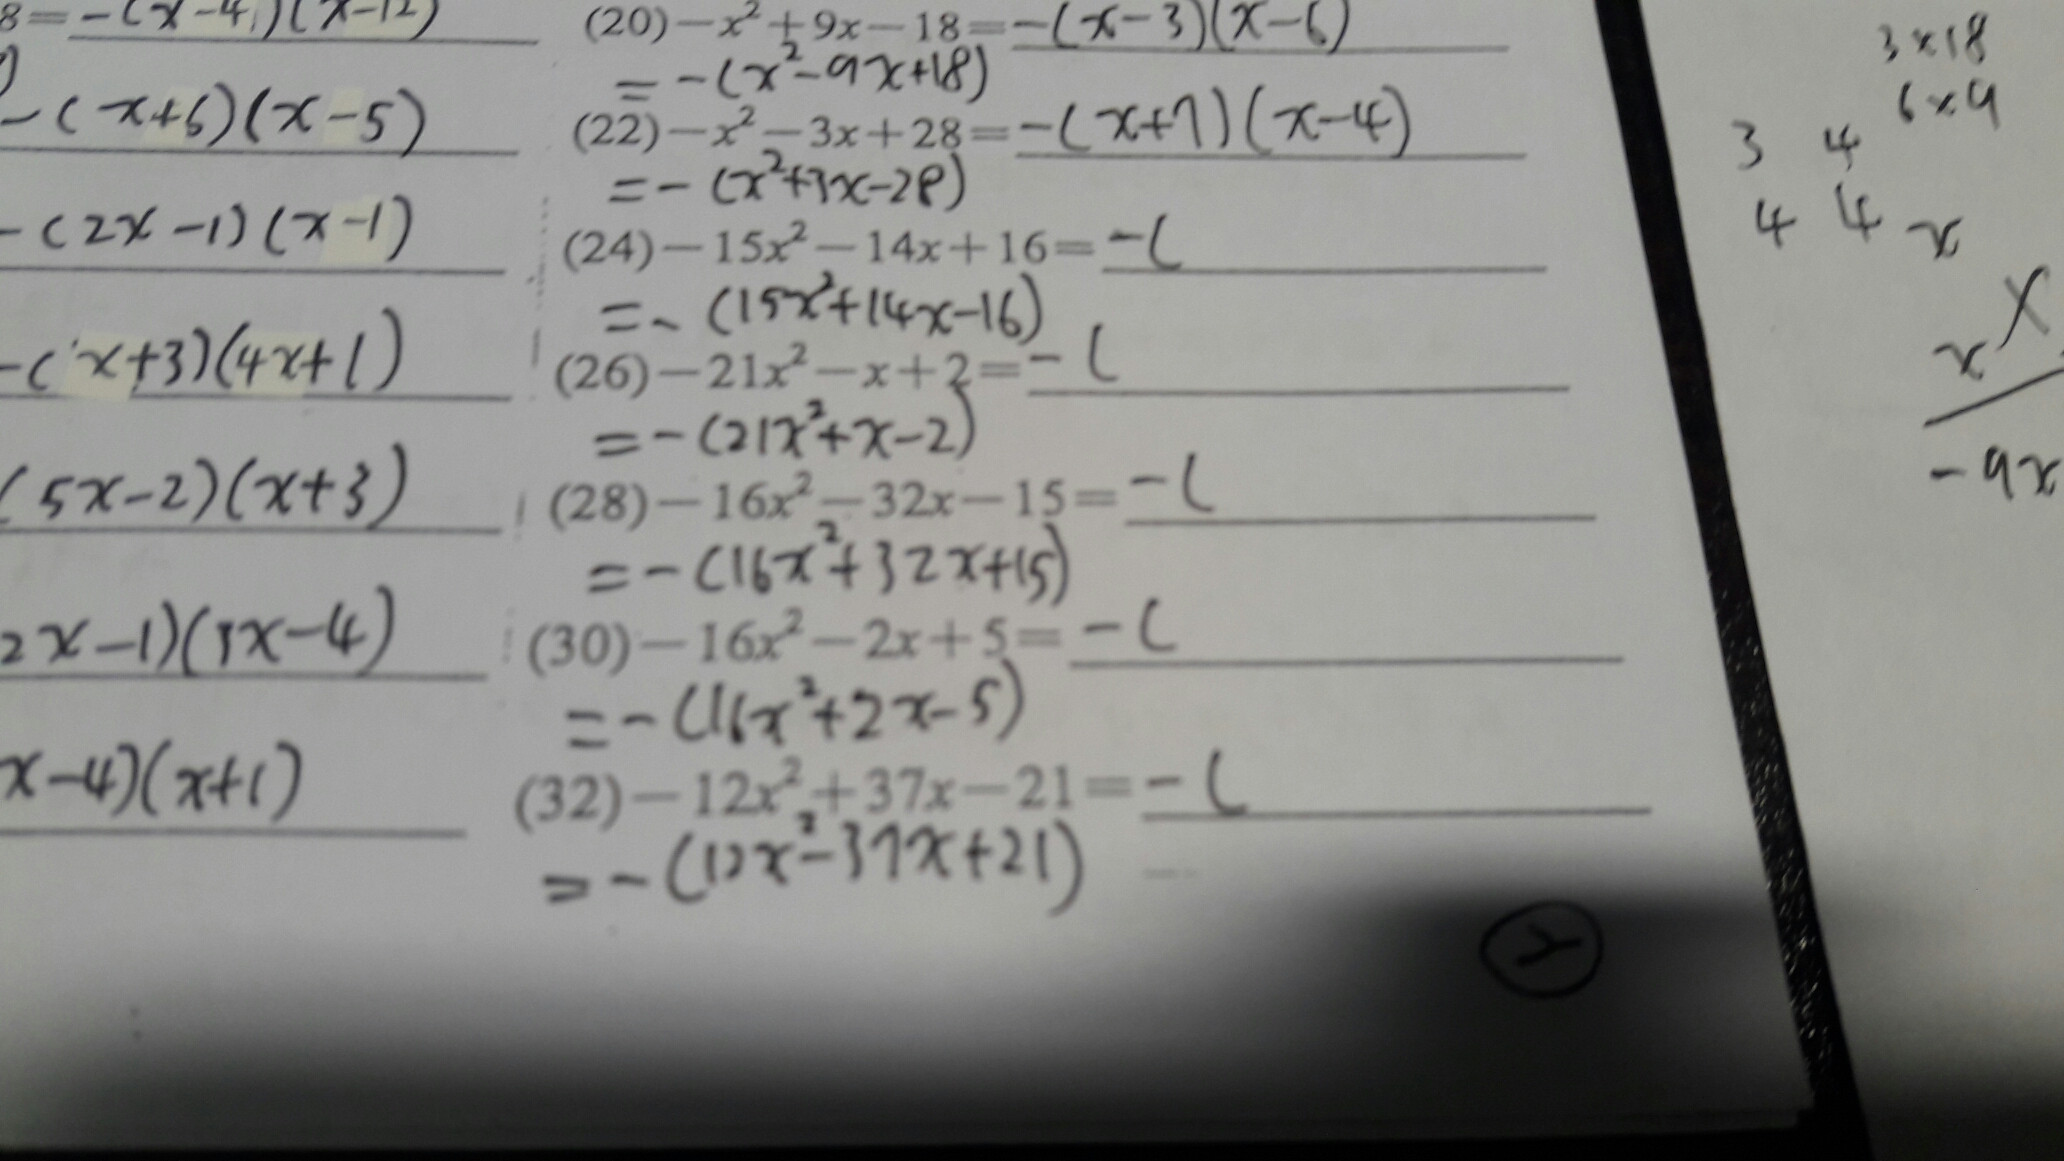 8=-(x-4)(x-12)
-(x+6)(x-5)
-(2x-1)(x-1)
-(x+3)(4x+1)
(5x-2)(x+3)
2x-1)(3x-4)
x-4)(x+1)
(20)-x²+9x-18=-(x-3)(x-6)
=-(x²-9x+18)
(22)-x²-3x+28=-(x+7)(x-4)
=-(x²+3x-28)
(24)-15x²-14x+16=-(
=-(15x²+14x-16)
(26)-21x²-x+2=-(
=-(21x²+x-2)
(28)-16x²-32x-15=-(
=-(16x²+32x+15)
(30)-16x²-2x+5=-(
=-(16x²+2x-5)
(32)-12x²+37x-21=-(
=-(12x²-37x+21)
3×18
6×9
3 4
4 4
x
x
-9x